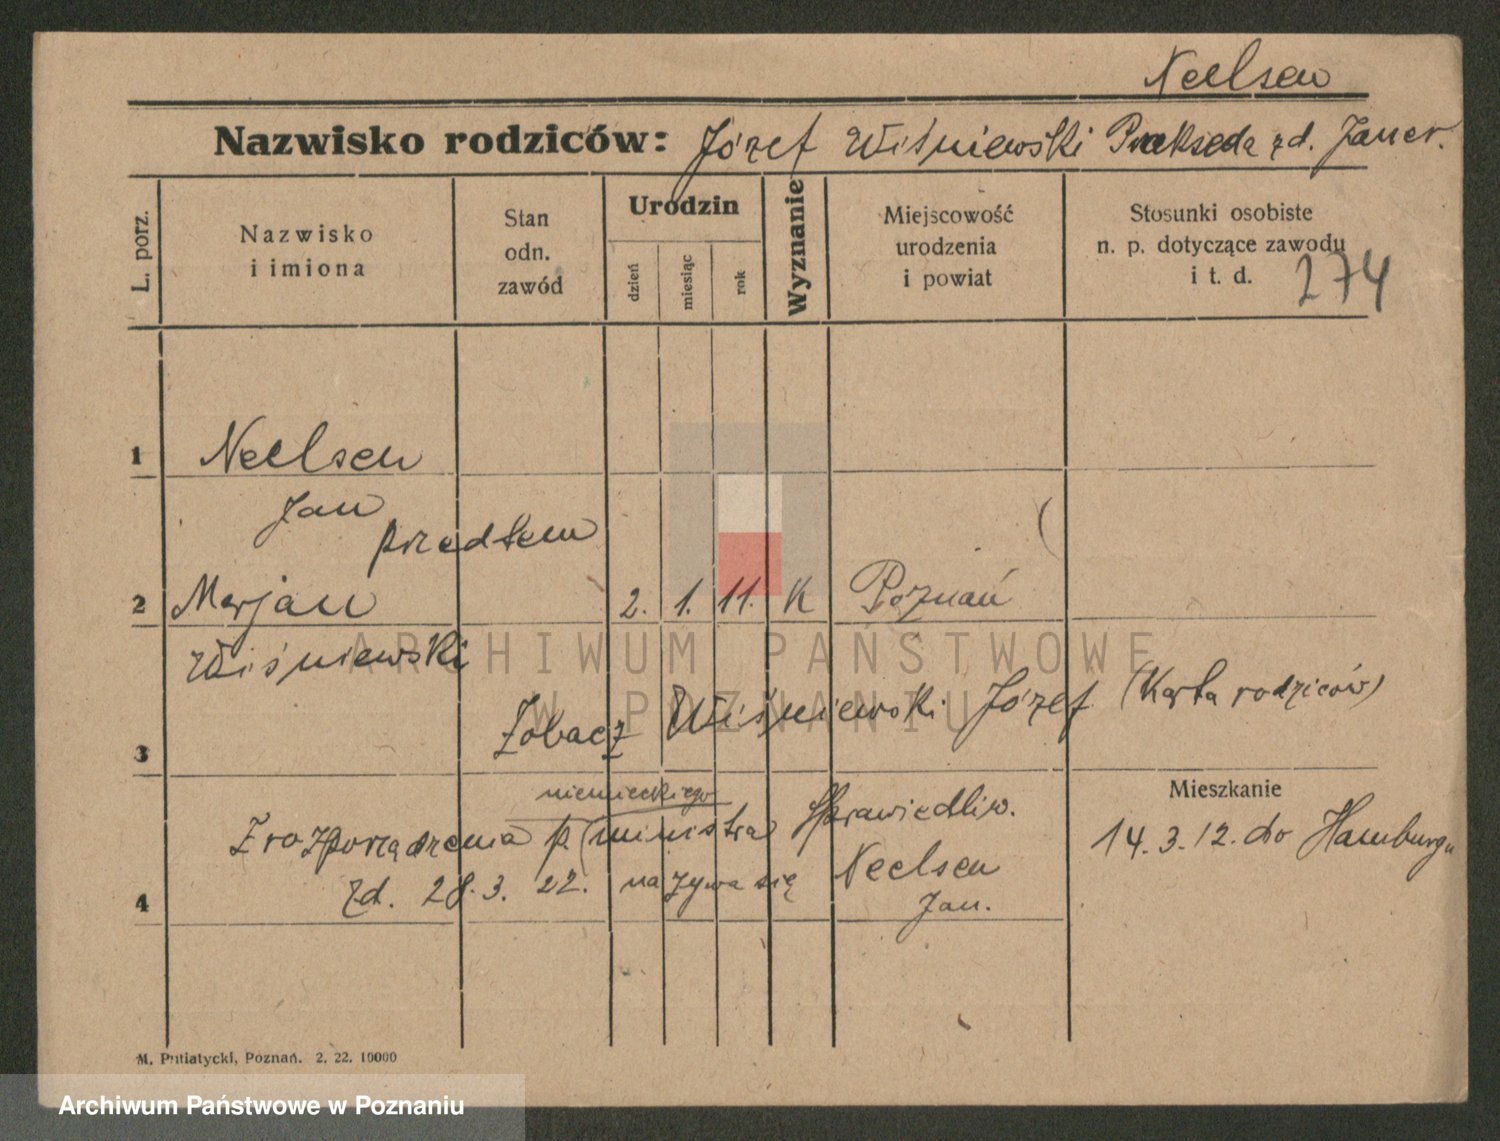 Neelsen
Nazwisko rodziców: Józef Wiśniewski Prakseda zd. Janer.
L. porz.
Nazwisko
i imiona
Stan
odn.
zawód
Urodzin
dzień
miesiąc
rok
Wyznanie
Miejscowość
urodzenia
i powiat
Stosunki osobiste
n. p. dotyczące zawodu
i t. d.
274
1 Neelsen
Jan
przedtem
2 Marjan 2. 1. 11. K Poznań
Wiśniewski
ARCHIWUM PAŃSTWOWE
W POZNANIU
Zobacz Wiśniewski Józef (Karta rodziców)
3
Mieszkanie
niemieckiego
Z rozporządzenia p. ministra Sprawiedliw.
14.3.12. do Hamburgu
zd. 28.3. 22. nazywa się Neelsen
4 Jan.
M. Putiatycki, Poznań. 2. 22. 10000
Archiwum Państwowe w Poznaniu